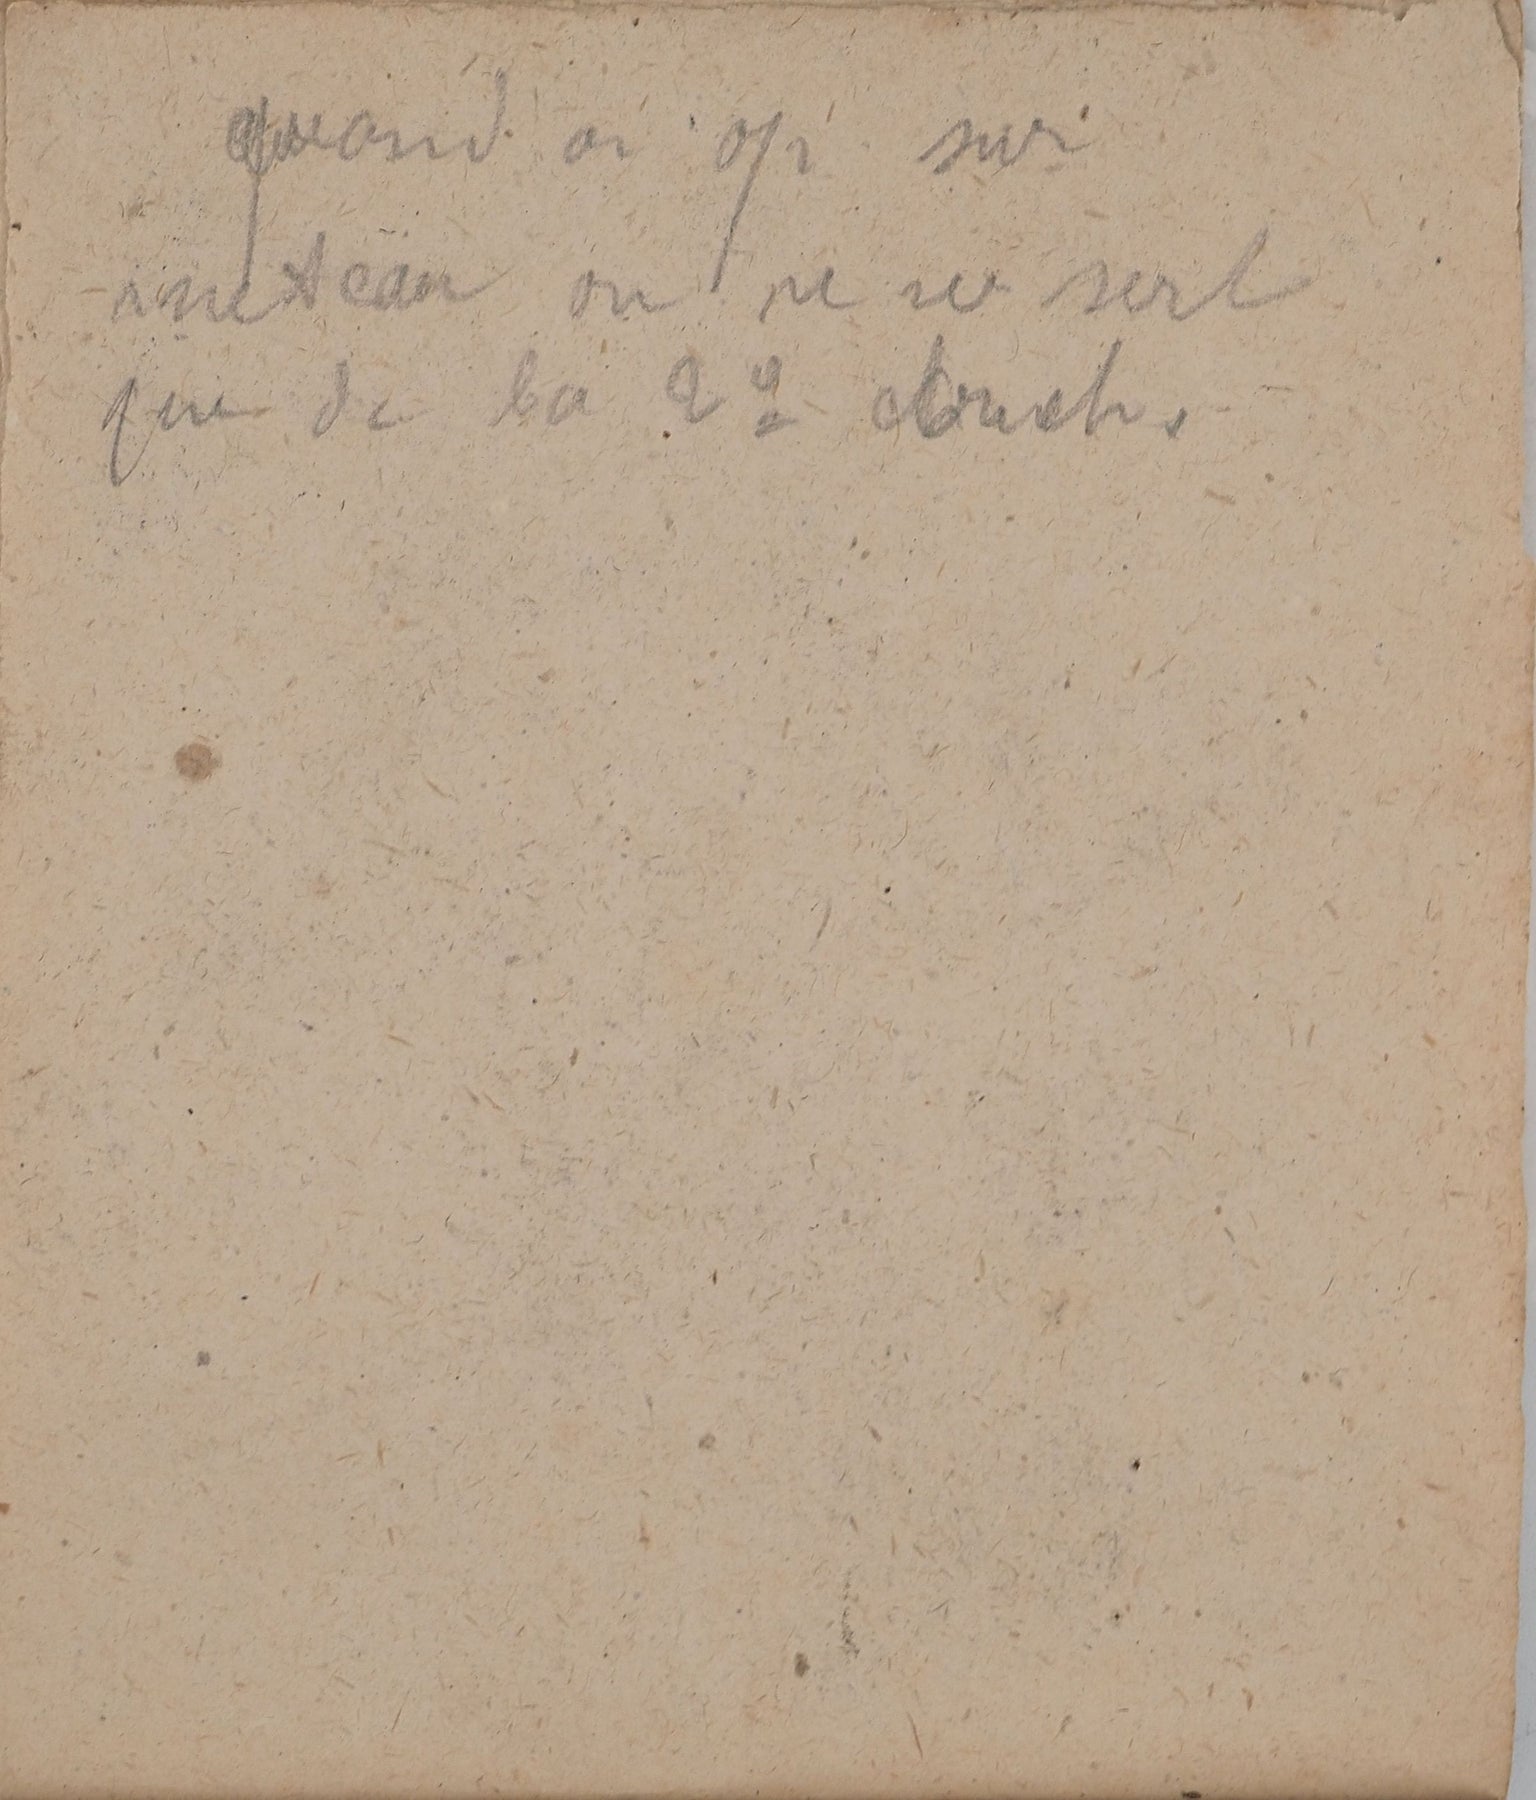 quand on op. sur
une t eau on ne se sert
que de la 2e douch.